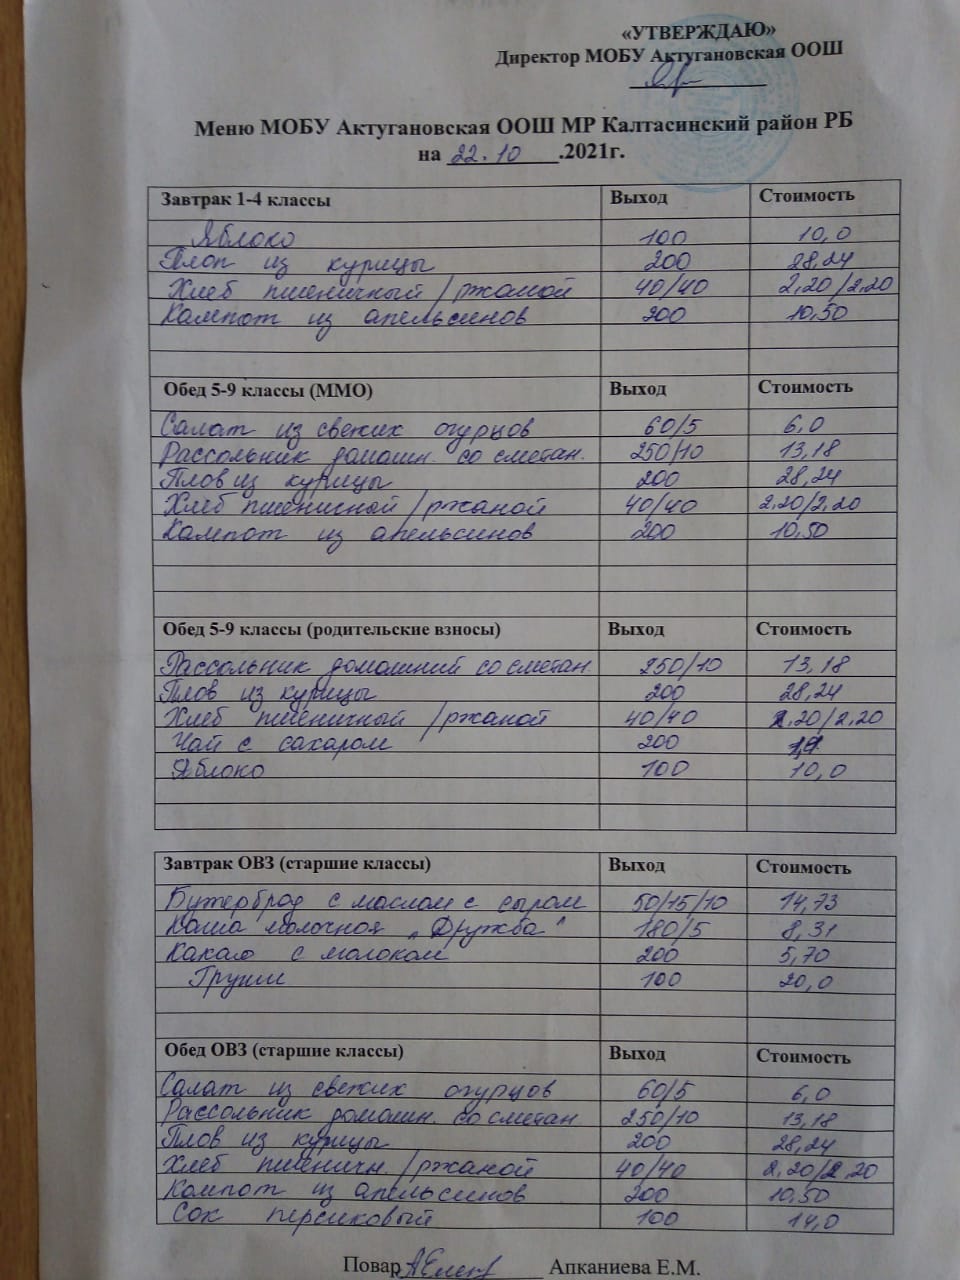 «УТВЕРЖДАЮ»
Директор МОБУ Актугановская ООШ
Меню МОБУ Актугановская ООШ МР Калтасинский район РБ
на 22.10 .2021г.
Завтрак 1-4 классы Выход Стоимость
Яблоко 100 10,0
Плоп из курицы 200 28,24
Хлеб пшеничный/ржаной 40/40 2,20/2,20
Кампот из апельсинов 200 10,50
Обед 5-9 классы (ММО) Выход Стоимость
Салат из свежих огурцов 60/5 6,0
Рассольник домашн. со сметан. 250/10 13,18
Плов из курицы 200 28,24
Хлеб пшеничной/ржаной 40/40 2,20/2,20
Кампот из апельсинов 200 10,50
Обед 5-9 классы (родительские взносы) Выход Стоимость
Рассольник домашний со сметан. 250/10 13,18
Плов из курицы 200 28,24
Хлеб пшеничной/ржаной 40/40 2,20/2,20
Чай с сахаром 200
Яблоко 100 10,0
Завтрак ОВЗ (старшие классы) Выход Стоимость
Бутерброд с маслом с сыром 50/15/10 14,73
Каша молочная „Дружба" 180/5 8,31
Какао с молоком 200 5,70
Груши 100 20,0
Обед ОВЗ (старшие классы) Выход Стоимость
Салат из свежих огурцов 60/5 6,0
Рассольник домашн. со сметан. 250/10 13,18
Плов из курицы 200 28,24
Хлеб пшеничн./ржаной 40/40 2,20/2,20
Компот из апельсинов 200 10,50
Сок персиковый 100 14,0
Повар Апканиева Е.М.